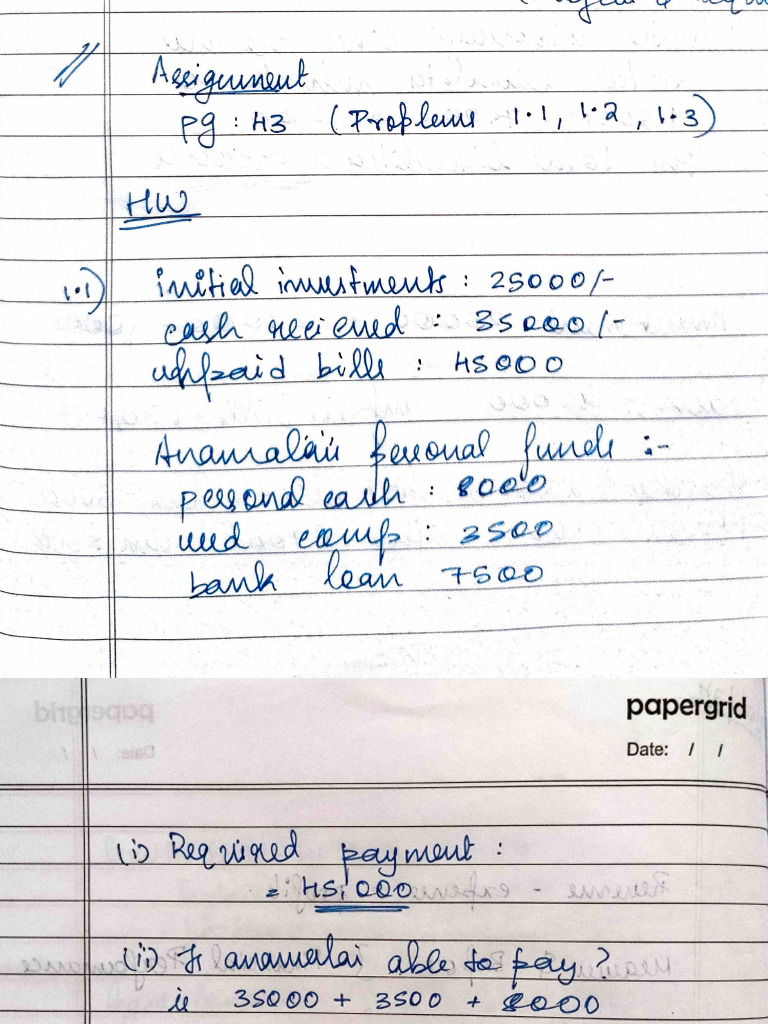 Assignment
pg : 43 (Problems 1.1, 1.2, 1.3)
HW
1.1) initial investments : 25000/-
cash recieved : 35000/-
unpaid bills : 45000
Anamalai's personal funds :-
personal cash : 8000
used comp : 3500
bank loan 7500
papergrid
Date: / /
(i) Required payment :
= 45,000
(ii) Is anamalai able to pay ?
ie 35000 + 3500 + 8000